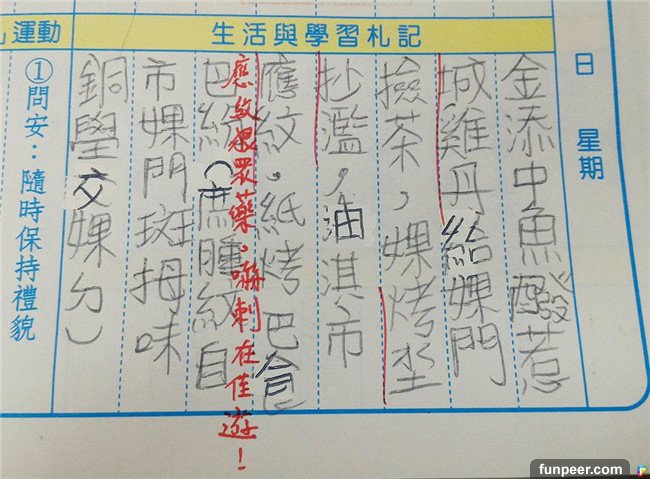 日 星期
生活與學習札記
運動
金添中魚發惹
城雞丹給婐門
撿茶，婐烤坔
抄濫，油淇市
應紋，紙烤巴食
巴紛(庶腫紋自
市婐門斑拇味
銅學交婐ㄉ)
應紋很眾藥。嚇刺在佳遊！
①問安：隨時保持禮貌
funpeer.com